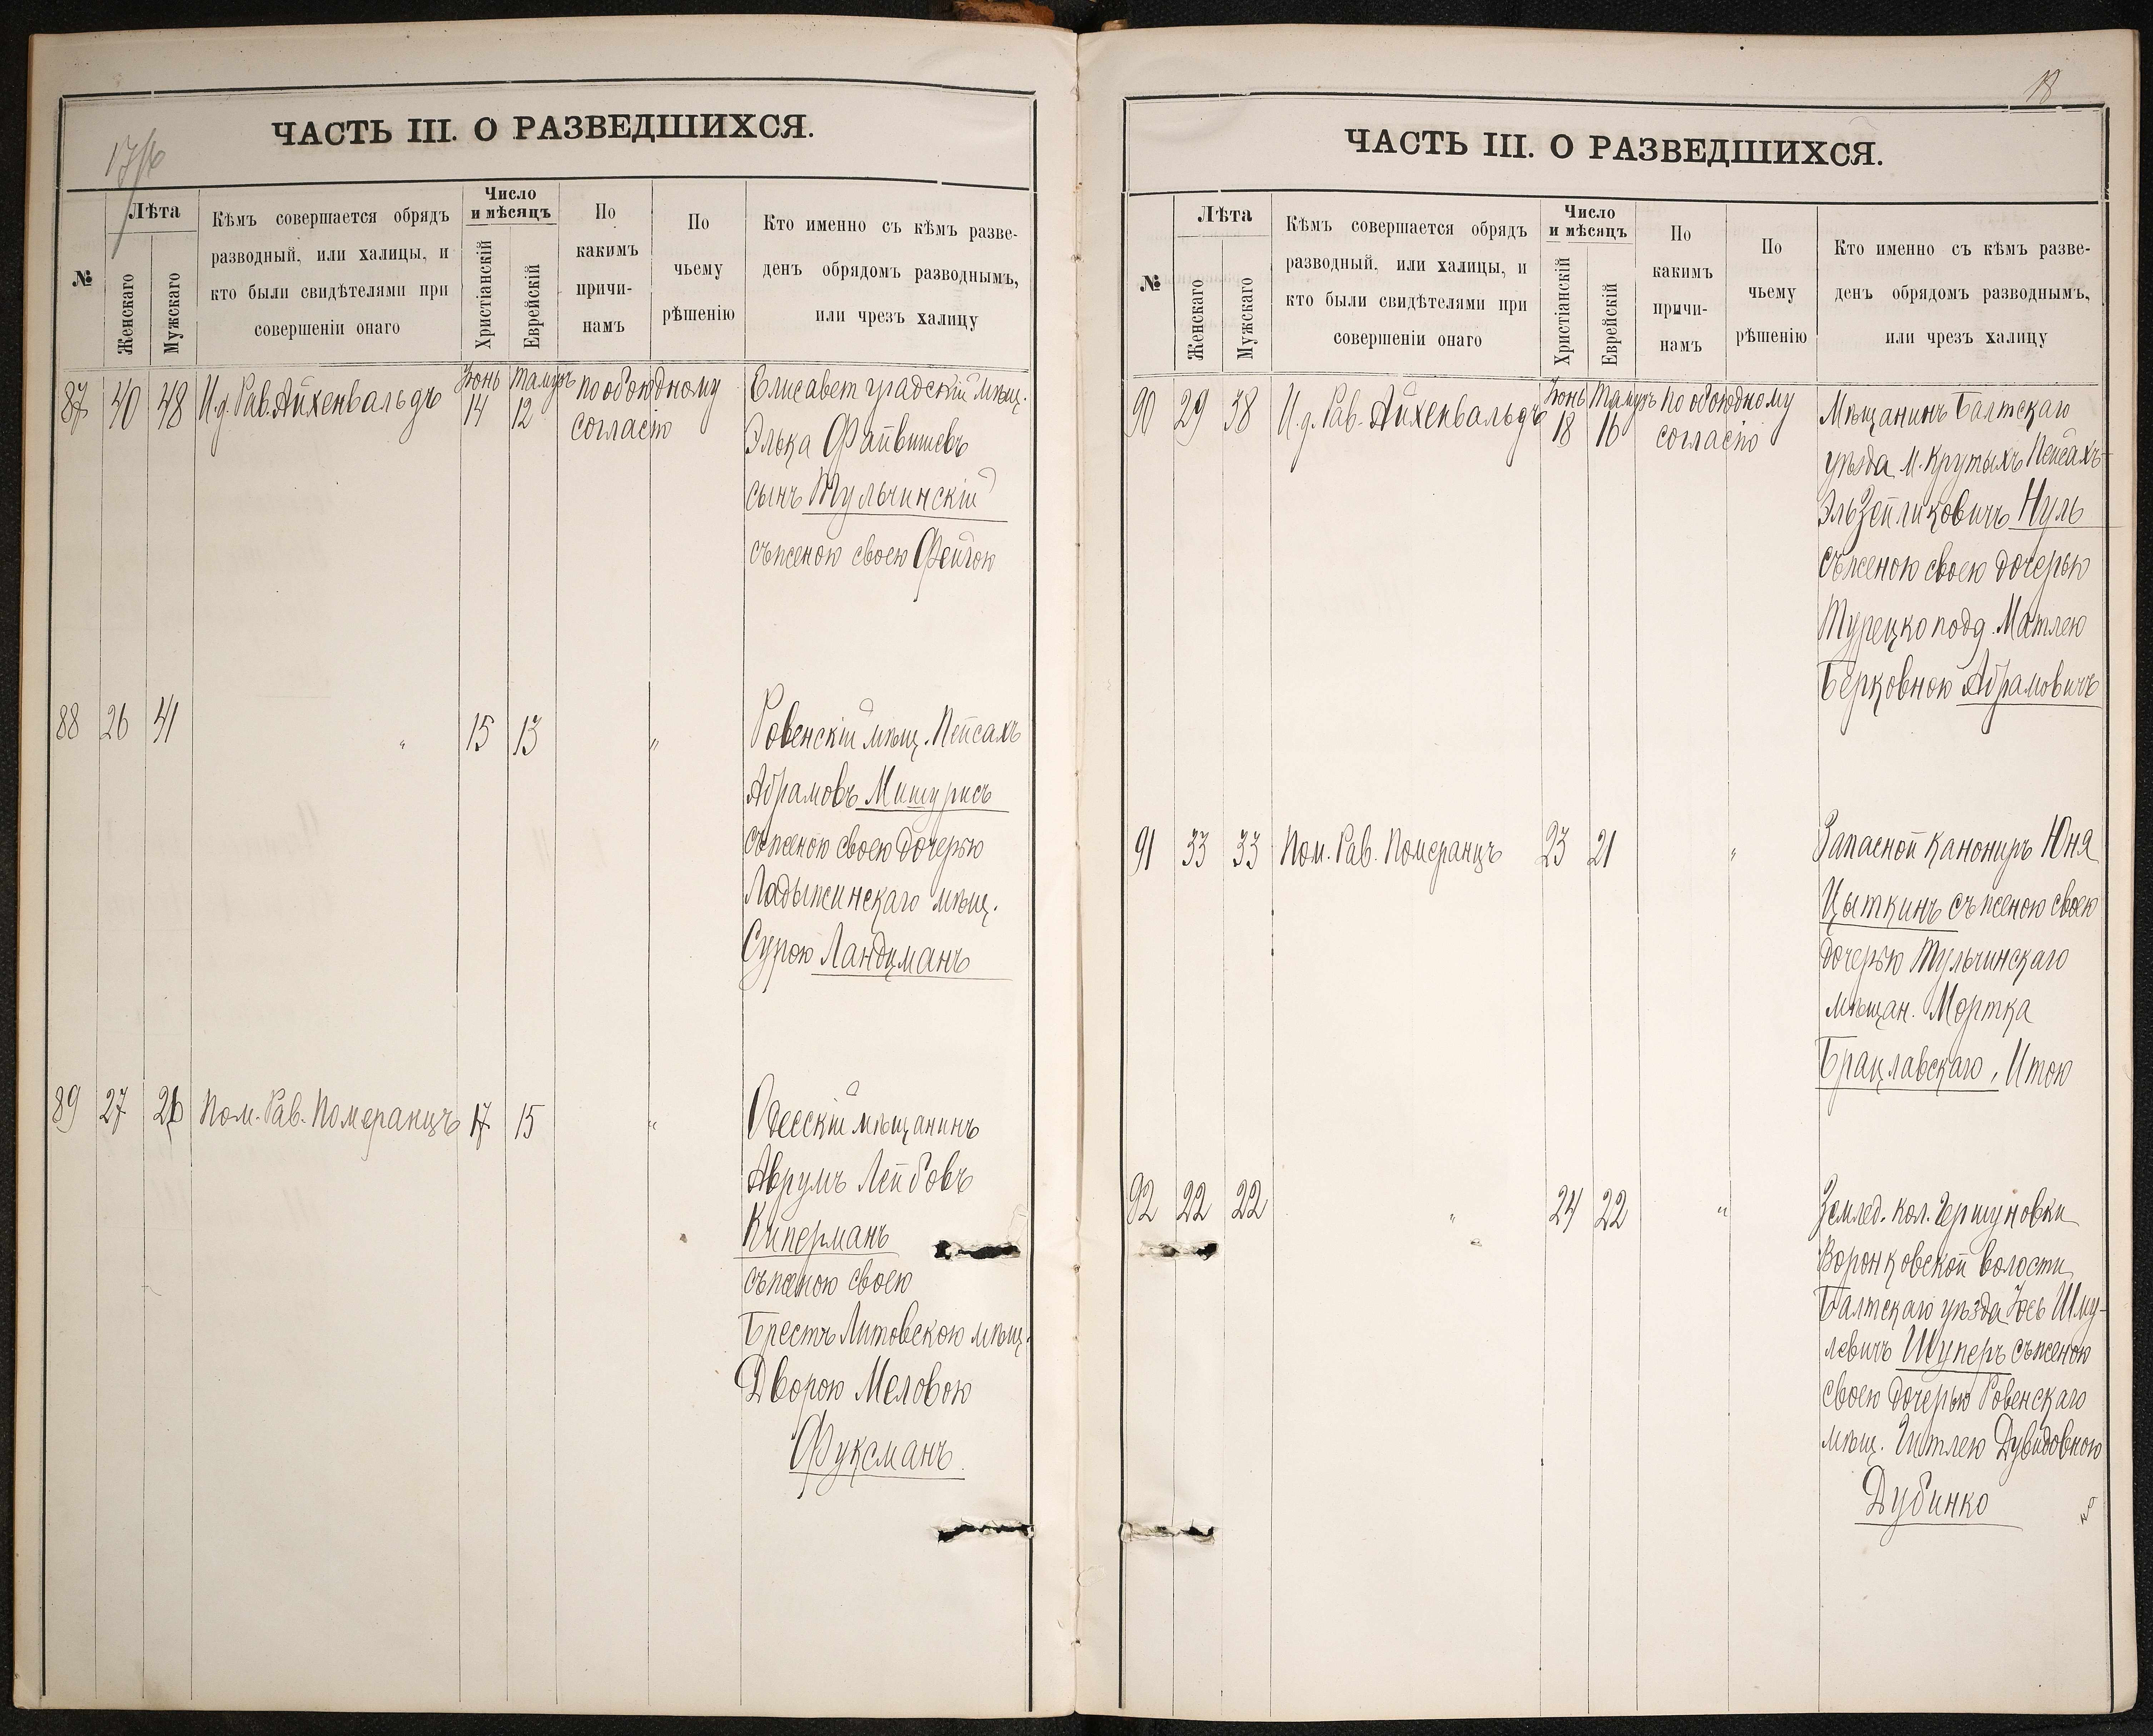 ЧАСТЬ III. О РАЗВЕДШИХСЯ.
№
Лѣта
Женскаго
Мужскаго
Кѣмъ совершается обрядъ
разводный, или халицы, и
кто были свидѣтелями при
совершеніи онаго
Число
и мѣсяцъ
Христіанскій
Еврейскій
По
какимъ
причи-
намъ
По
чьему
рѣшенію
Кто именно съ кѣмъ разве-
денъ обрядомъ разводнымъ,
или чрезъ халицу
87 40 48 И.д. Рав. Айхенвальдъ Іюнь 14 Тамузъ 12 по обоюдному
согласію
Елисаветградскій мѣщ.
Элька Файвишевъ
сынъ Тульчинскій
съ женою своею Фейгою
88 26 41 " 15 13 "
Ровенскій мѣщ. Пейсахъ
Абрамовъ Мишурисъ
съ женою своею дочерью
Ладыжинскаго мѣщ.
Сурою Ландцманъ
89 27 26 Пом. Рав. Померанцъ 17 15 "
Одесскій мѣщанинъ
Аврумъ Лейбовъ
Киперманъ
съ женою своею
Брестъ Литовскою мѣщ.
Дворою Меловою
Фуксманъ.
18
ЧАСТЬ III. О РАЗВЕДШИХСЯ.
№
Лѣта
Женскаго
Мужскаго
Кѣмъ совершается обрядъ
разводный, или халицы, и
кто были свидѣтелями при
совершеніи онаго
Число
и мѣсяцъ
Христіанскій
Еврейскій
По
какимъ
причи-
намъ
По
чьему
рѣшенію
Кто именно съ кѣмъ разве-
денъ обрядомъ разводнымъ,
или чрезъ халицу
90 29 38 И.д. Рав. Айхенвальдъ Іюнь 18 Тамузъ 16 по обоюдному
согласію
Мѣщанинъ Балтскаго
уѣзда м. Крутыхъ Пейсахъ-
Эль Зейликовичъ Нуль
съ женою своею дочерью
Турецко подд. Матлею
Берковною Абрамовичъ
91 33 33 Пом. Рав. Померанцъ 23 21 "
Запасной канониръ Юна
Цыткинъ съ женою своею
дочерью Тульчинскаго
мѣщан. Мортка
Брацлавскаго, Итою
92 22 22 " 24 22 "
Землед. кол. Гершуновки
Воронковской волости
Балтскаго уѣзда Іось Шму-
левичъ Шуперъ съ женою
своею дочерью Ровенскаго
мѣщ. Гитлею Дувидовною
Дубинко